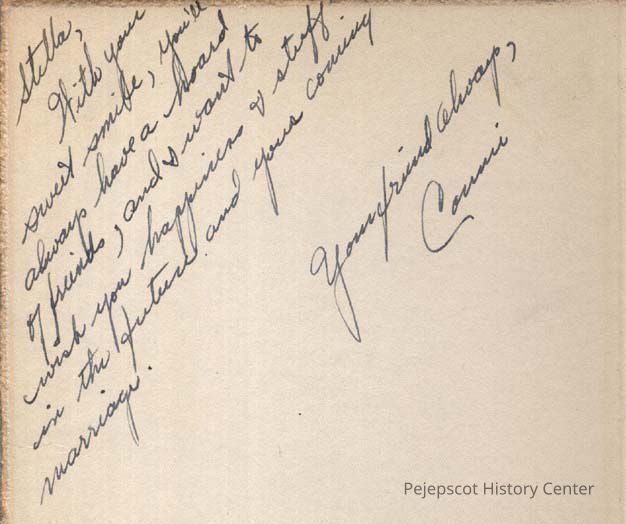 Stella,
With your
sweet smile, you'll
always have a hoard
of friends, and I want to
wish you happiness & stuff
in the future and your coming
marriage.
Your friend always,
Connie
Pejepscot History Center